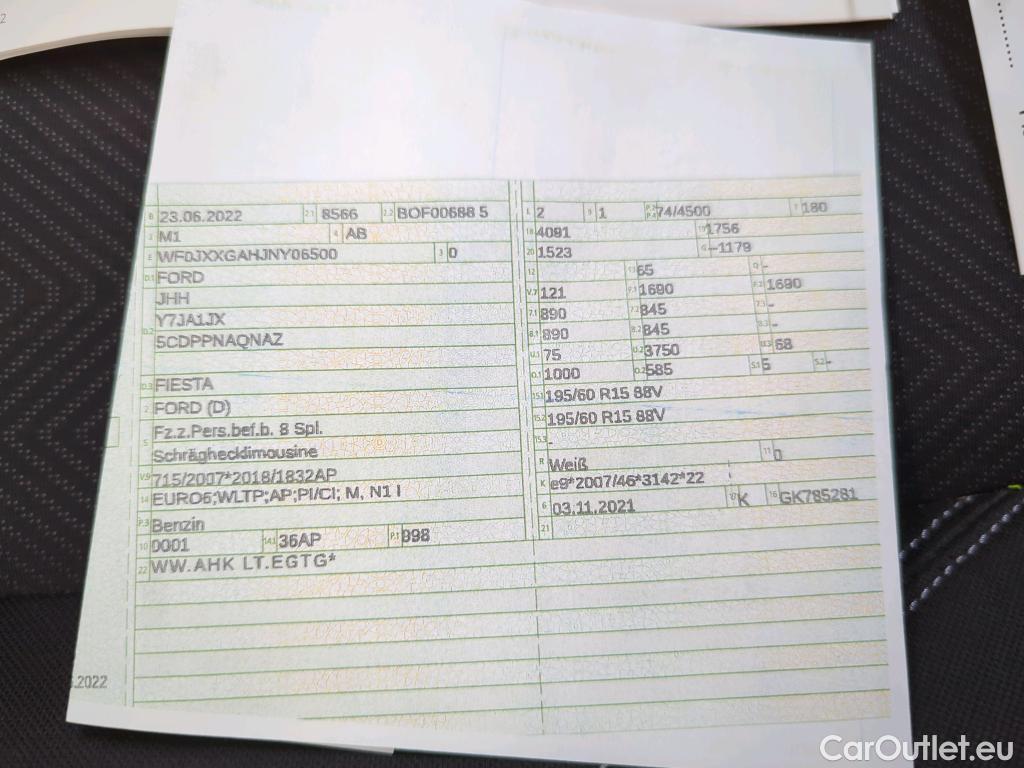 B 23.06.2022 2.1 8566 2.2 BOF00688 5
J M1 4 AB
E WF0JXXGAHJNY06500 3 0
D.1 FORD
JHH
D.2 Y7JA1JX
5CDPPNAQNAZ
D.3 FIESTA
2 FORD (D)
5 Fz.z.Pers.bef.b. 8 Spl.
Schräghecklimousine
V.9 715/2007*2018/1832AP
14 EURO6;WLTP;AP;PI/CI; M, N1 I
P.3 Benzin
10 0001 14.1 36AP P.1 998
22 WW.AHK LT.EGTG*
L 2 9 1 P.2 P.4 74/4500 T 180
18 4091 19 1756
20 1523 G —1179
12 13 65 Q -
V.7 121 F.1 1690 F.2 1690
7.1 890 7.2 845 7.3 -
8.1 890 8.2 845 8.3 -
U.1 75 U.2 3750 U.3 68
O.1 1000 O.2 585 S.1 5 S.2 -
15.1 195/60 R15 88V
15.2 195/60 R15 88V
15.3 -
R Weiß 11 0
K e9*2007/46*3142*22
6 03.11.2021 17 K 16 GK785281
21
.2022
2
CarOutlet.eu